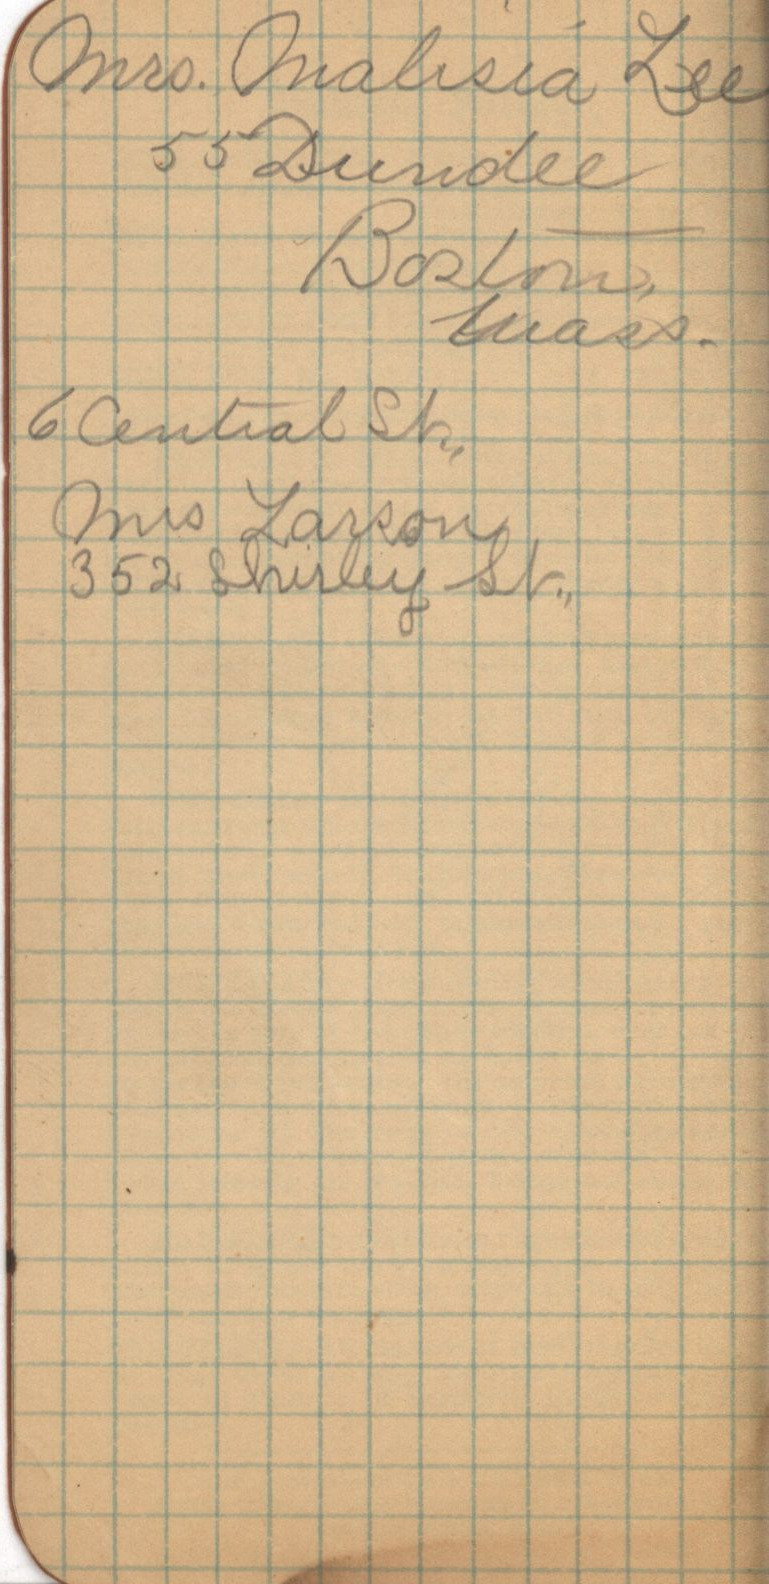 Mrs. Malisia Lee
55 Dundee
Boston,
Mass.
6 Central St.,
Mrs Larson
352 Shirley St.,